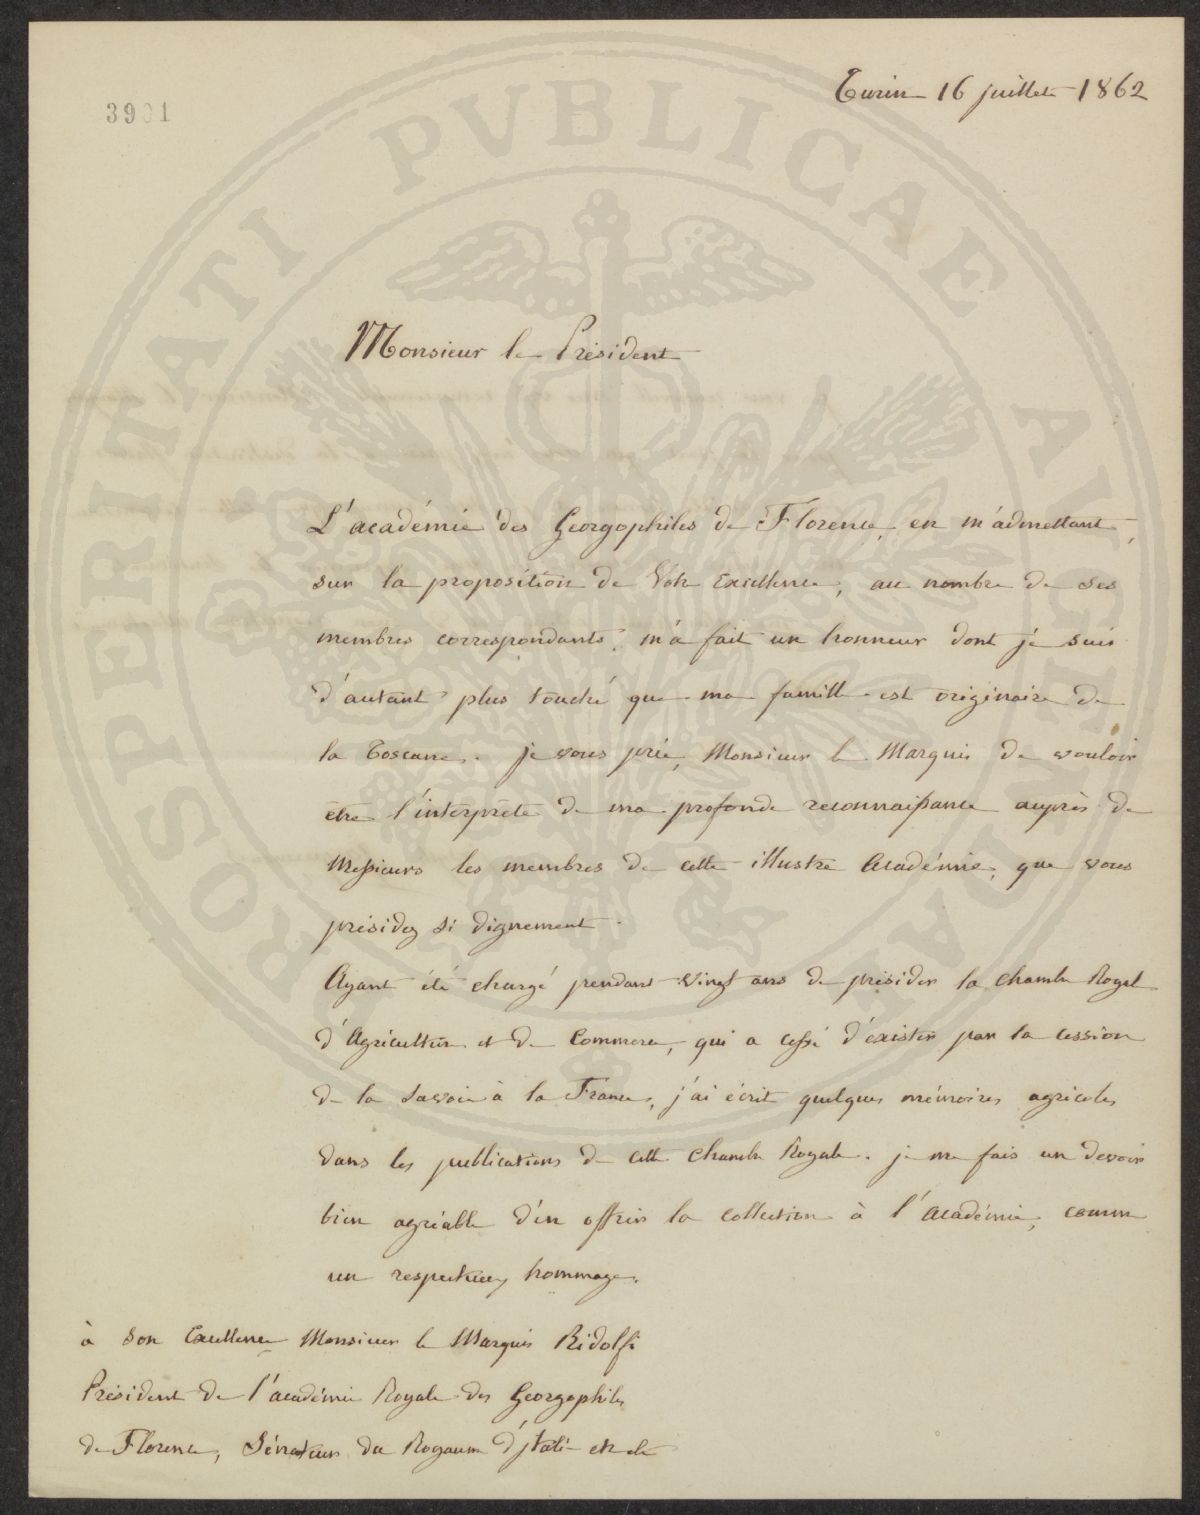 PROSPERITATI PUBLICAE AUGENDAE
3901
Turin 16 juillet 1862
Monsieur le Président
L'académie des Georgophiles de Florence, en m'admettant,
sur la proposition de Votre Excellence, au nombre de ses
membres correspondants, m'a fait un honneur dont je suis
d'autant plus touché que ma famille est originaire de
la Toscane. je vous prie, Monsieur le Marquis de vouloir
être l'interprète de ma profonde reconnaissance auprès de
Messieurs les membres de cette illustre Académie, que vous
présidez si dignement.
Ayant été chargé pendant vingt ans de présider la Chambre Royale
d'Agriculture et de Commerce, qui a cessé d'exister par la cession
de la Savoie à la France, j'ai écrit quelques mémoires agricoles
dans les publications de cette Chambre Royale. je me fais un devoir
bien agréable d'en offrir la collection à l'Académie, comme
un respectueux hommage.
à Son Excellence Monsieur le Marquis Ridolfi
Président de l'académie Royale des Georgophiles
de Florence, Sénateur du Royaume d'jtalie etc etc